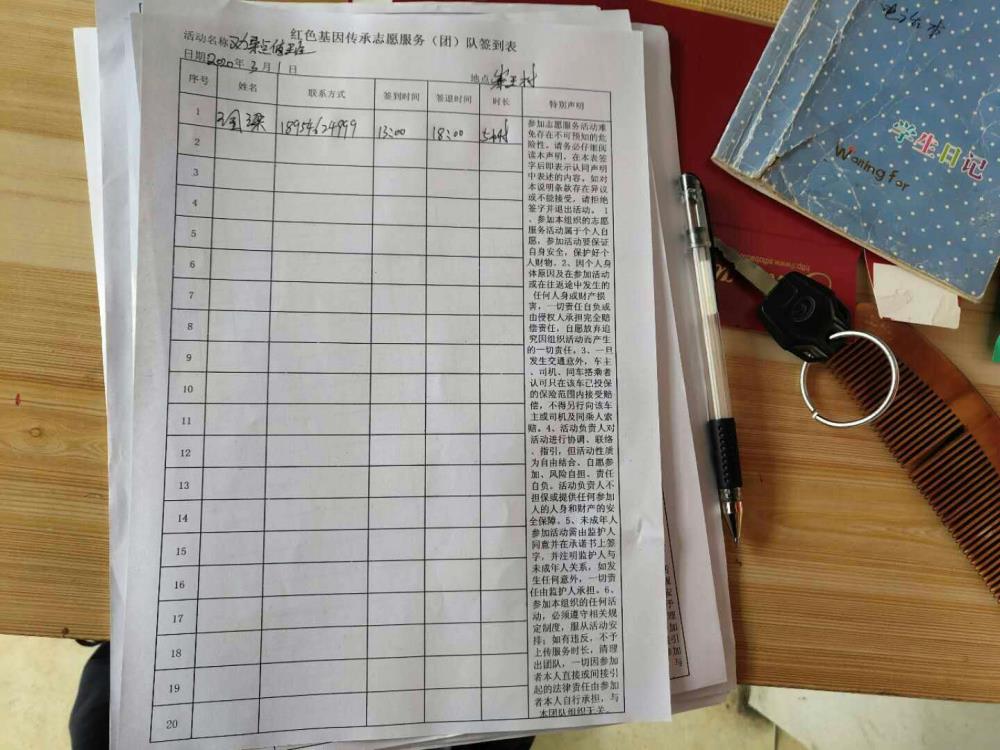 红色基因传承志愿服务（团）队签到表
活动名称
日期2020年3月1日
地点
序号 姓名 联系方式 签到时间 签退时间 时长 特别声明
1 18954624999 13:00 18:00 5小时
2
3
4
5
6
7
8
9
10
11
12
13
14
15
16
17
18
19
20
参加志愿服务活动难
免存在不可预知的危
险性。请务必仔细阅
读本声明。在本表签
字后即表示认同声明
中表述的内容。如对
本说明条款存在异议
或不能接受，请拒绝
签字并退出活动。1
、参加本组织的志愿
服务活动属于个人自
愿，参加活动要保证
自身安全，保护好个
人财物。2、因个人身
体原因及在参加活动
或在往返途中发生的
任何人身或财产损
害，一切责任自负或
由侵权人承担完全赔
偿责任，自愿放弃追
究因组织活动而产生
的一切责任。3、一旦
发生交通意外，车主
、司机、同车搭乘者
认可只在该车已投保
的保险范围内接受赔
偿，不得另行向该车
主或司机及同乘人索
赔。4、活动负责人对
活动进行协调、联络
、指引，但活动性质
为自由结合、自愿参
加、风险自担、责任
自负。活动负责人不
担保或提供任何参加
人的人身和财产的安
全保障。5、未成年人
参加活动需由监护人
同意并在承诺书上签
字，并注明监护人与
未成年人关系，如发
生任何意外，一切责
任由监护人承担。6、
参加本组织的任何活
动，必须遵守相关规
定制度，服从活动安
排；如有违反，不予
上传服务时长，清理
出团队，一切因参加
者本人直接或间接引
起的法律责任由参加
者本人自行承担，与
本团队组织无关。
学生日记
Waiting For